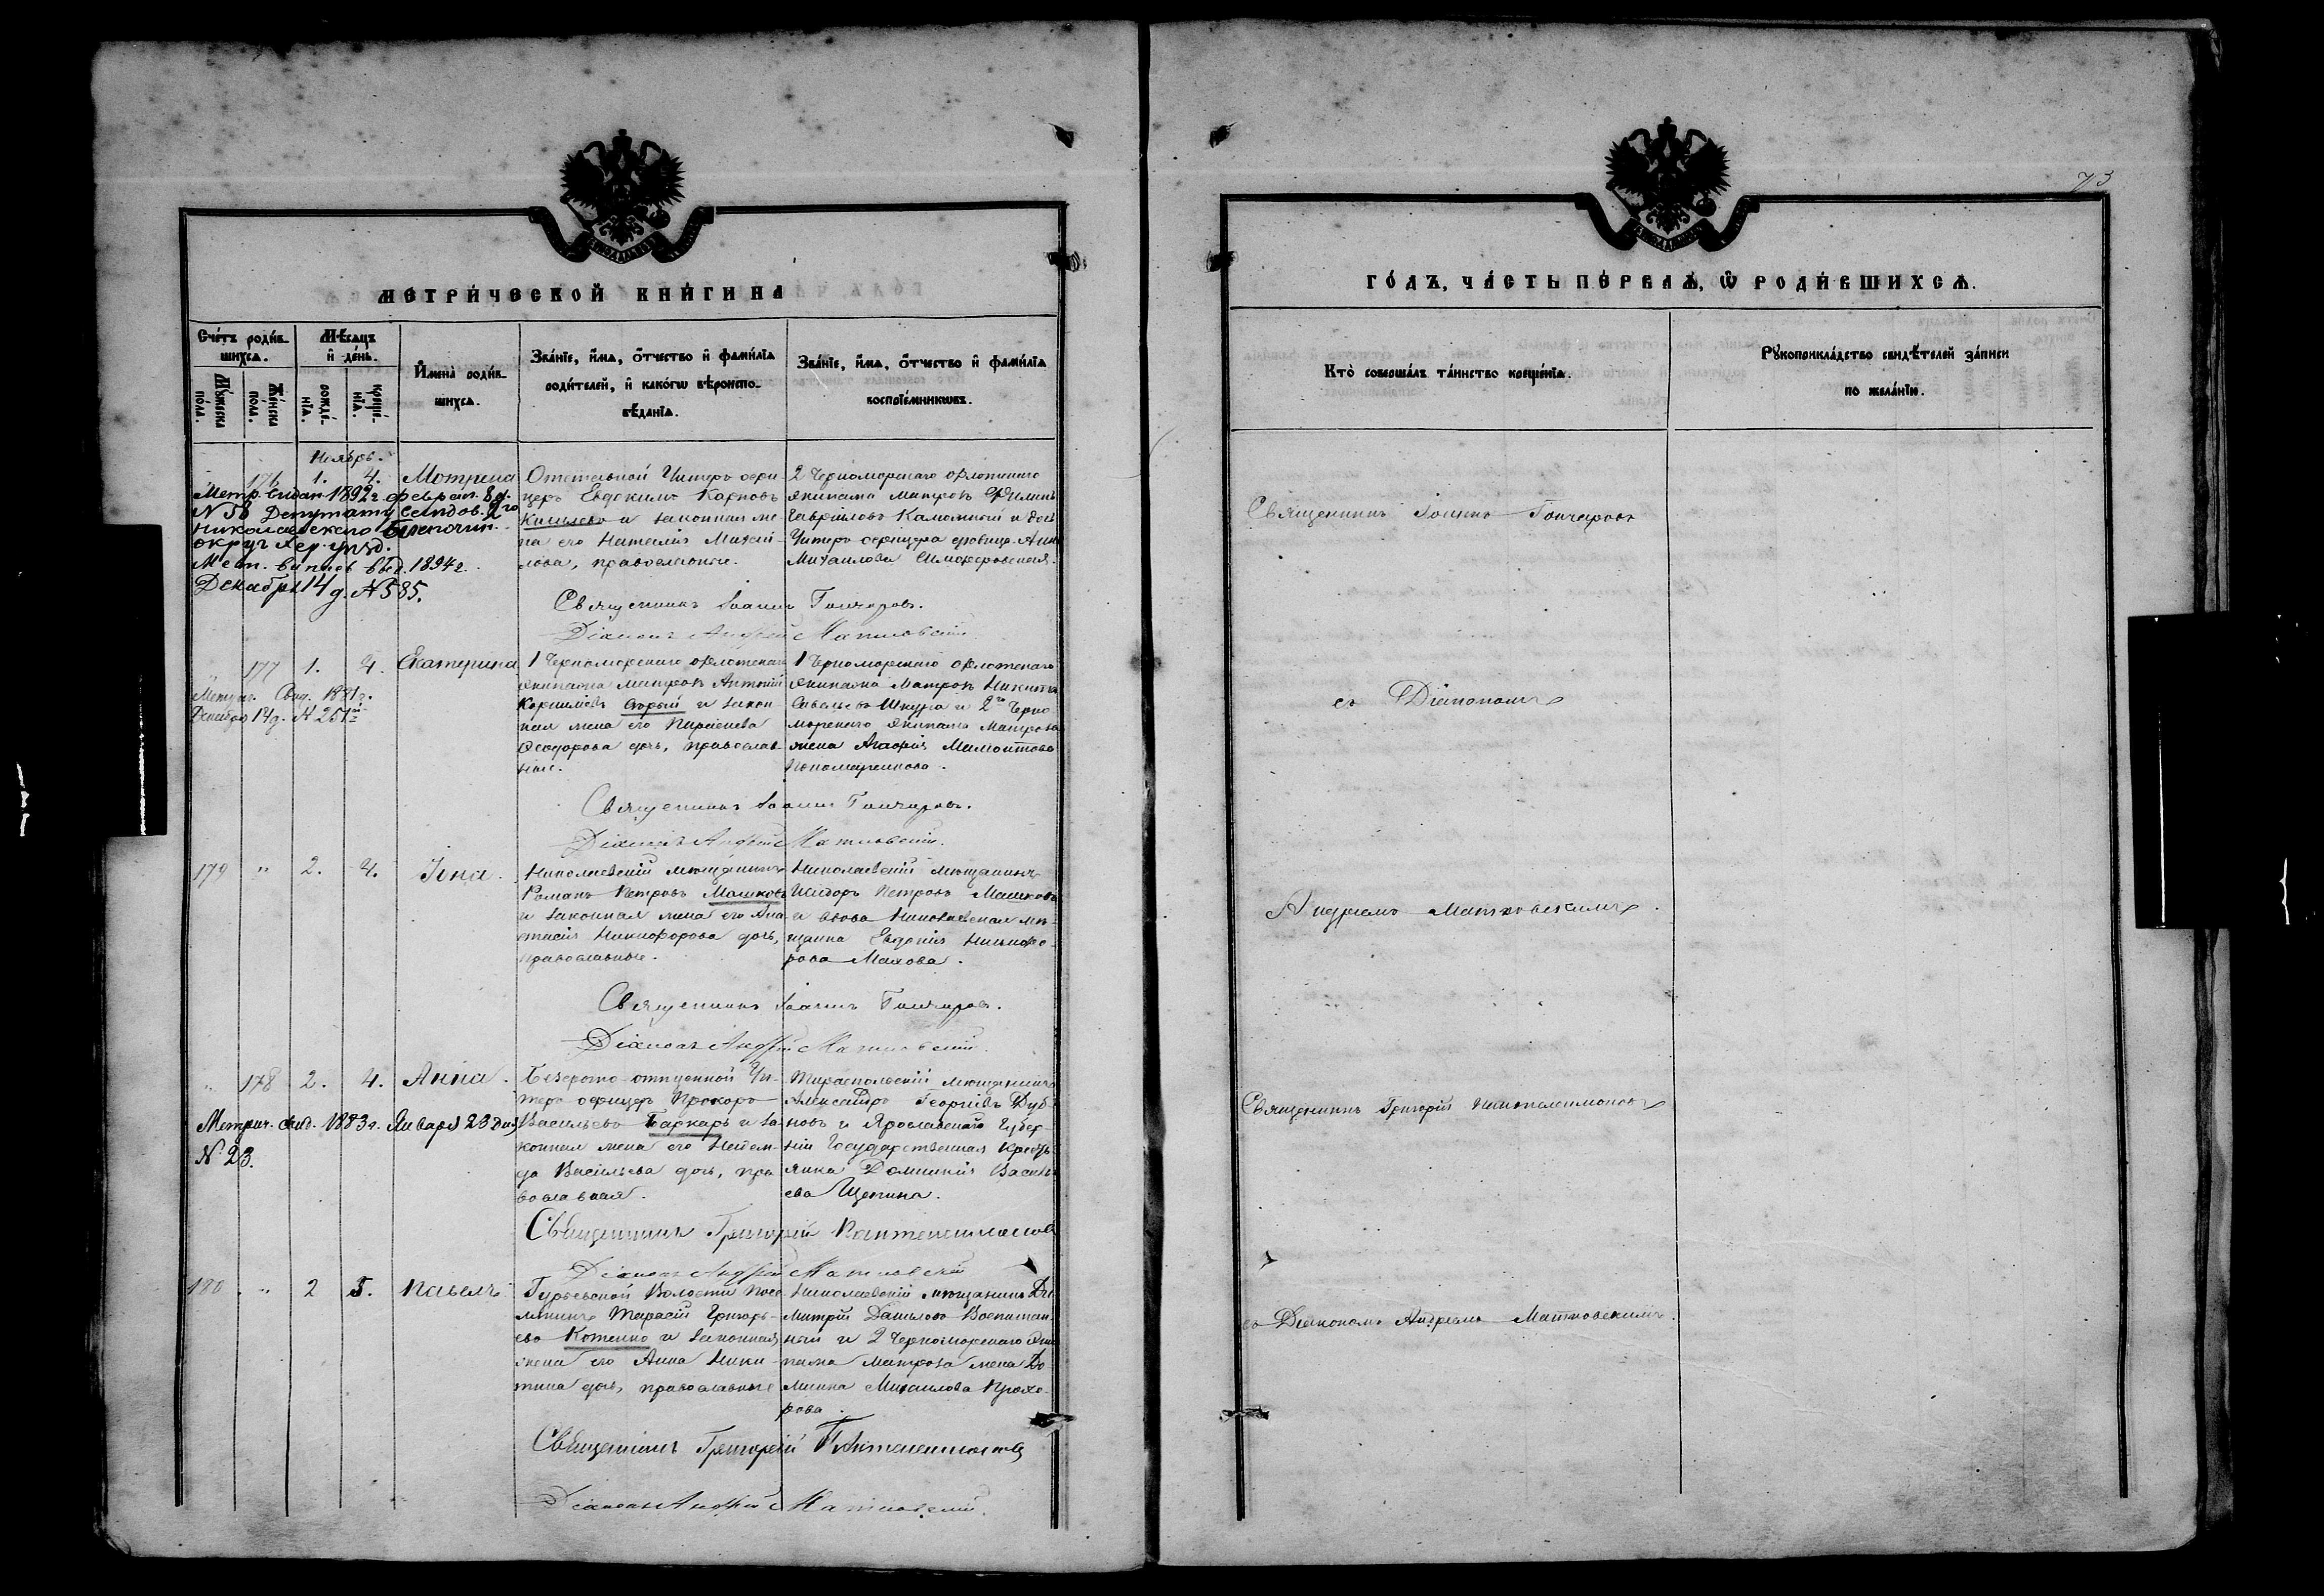 73
МЕТРИЧЕСКОЙ КНИГИ НА
Счетъ родив-
шихся.
Мужеска пола.
Женска пола.
Мѣсяцъ
и день.
рожде-
нія.
креще-
нія.
Имена родив-
шихся.
Званіе, имя, отчество и фамилія
родителей, и какогω вѣроиспо-
вѣданія.
Званіе, имя, отчество и фамилія
воспріемникωвъ.
Ноябрь.
" 176 1. 4. Мотрона
Отставной Унтеръ офи-
церъ Евдокимъ Карповъ
Киселевъ и законная же-
на его Наталія Михай-
лова, православные.
2 Черноморскаго флотскаго
экипажа матросъ Филипъ
Гавриловъ и дочь
Унтеръ офицера девица Анна
Михаилова
Метр. выдан 1892 г. феврал. 8 д.
N 58 Депутату
Николаевскаго
округ Хер. уѣзд.
Мет. выпись выд. 1894 г.
Декабря 14 д. N 585.
Священникъ Іоаннъ Гончаровъ.
Діаконъ Андрей Матковскій
" 177 1. 4. Екатерина
1 Черноморскаго флотскаго
экипажа матросъ Антоній
Корнилієвъ Старый и закон-
ная жена его Параскева
Феодорова дочь, православ-
ные.
1 Черноморскаго флотскаго
экипажа Матросъ Никита
Савельевъ Шкура и 2го Черно-
морскаго экипажа Матроса
жена Агафія Мамонтова
Пономаренкова.
Метрич. Свид. 1881 г.
Декабря 14 д. N 251
Священникъ Іоаннъ Гончаровъ.
Діаконъ Андрей Матковскій.
179 " 2. 4. Іона.
Николаевскій мѣщанинъ
Романъ Петровъ Машковъ
и законная жена его Ана-
стасія Никифорова дочь,
православные.
Николаевскій мѣщанинъ
Исидоръ Петровъ Машковъ
и вдова Николаевская мѣ-
щанка Евдокія Никифо-
рова Махова.
Священникъ Іоаннъ Гончаровъ.
Діаконъ Андрей Матковскій.
" 178 2. 4. Анна.
Безсрочно-отпускной Ун-
теръ офицеръ Прохоръ
Васильевъ Баркарь и за-
конная жена его
Васильева дочь, пра-
вославная.
Тираспольскій мѣщанинъ
Александръ Георгіевъ Дуб-
новъ и Ярославской Губер-
ніи Государственная кресть-
янка Домникія Василь-
ева Щепина.
Метрич. свид. 1883 г. Января 23 дня
N 23.
Священникъ Григорій Пантелеимоновъ
Діаконъ Андрей Матковскій
180 " 2 5. Павелъ
Гурьевской Волости Посе-
лянинъ Тарасій Григорь-
евъ Котенко и законная
жена его Анна Ники-
тина дочь, православные
Николаевскій мѣщанинъ Ди-
митрій Даниловъ Воспитан-
ный и 2 Черноморскаго эки-
пажа матроса жена До-
мника Михаилова Прохо-
рова.
Священникъ Григорій Пантелеимоновъ
Діаконъ Андрей Матковскій.
ГОДЪ, ЧАСТЬ ПЕРВАЯ, Ѡ РОДИВШИХСЯ.
Кто совершалъ таинство крещенія.
Рꙋкоприкладство свидѣтелей записи
по желанію.
Священникъ Іоаннъ Гончаровъ
съ Діакономъ
Андреемъ Матковскимъ.
Священникъ Григорій Пантелеимоновъ
съ Діакономъ Андреемъ Матковскимъ.